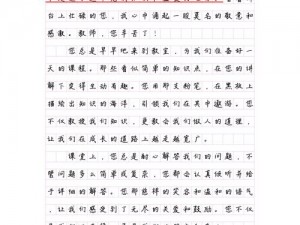 台上忙碌的您,我心中涌起一股莫名的敬意和
感激。教师,您辛苦了!
您总是早早地来到教室,为我们准备好一
天的课程。那些看似简单的知识点,在您的讲
解下变得生动有趣。您用那支粉笔,在黑板上
描绘出知识的海洋,引领我们在其中遨游。您
不仅教授我们知识,更教会我们做人的道理,
让我们在成长的道路上越走越宽广。
课堂上,您总是耐心解答我们的问题,不
管问题多么简单或复杂,您都会认真倾听并给
予详细的解答。您那慈祥的笑容和温和的语气
,让我们感受到了无尽的关爱和鼓励。您不仅